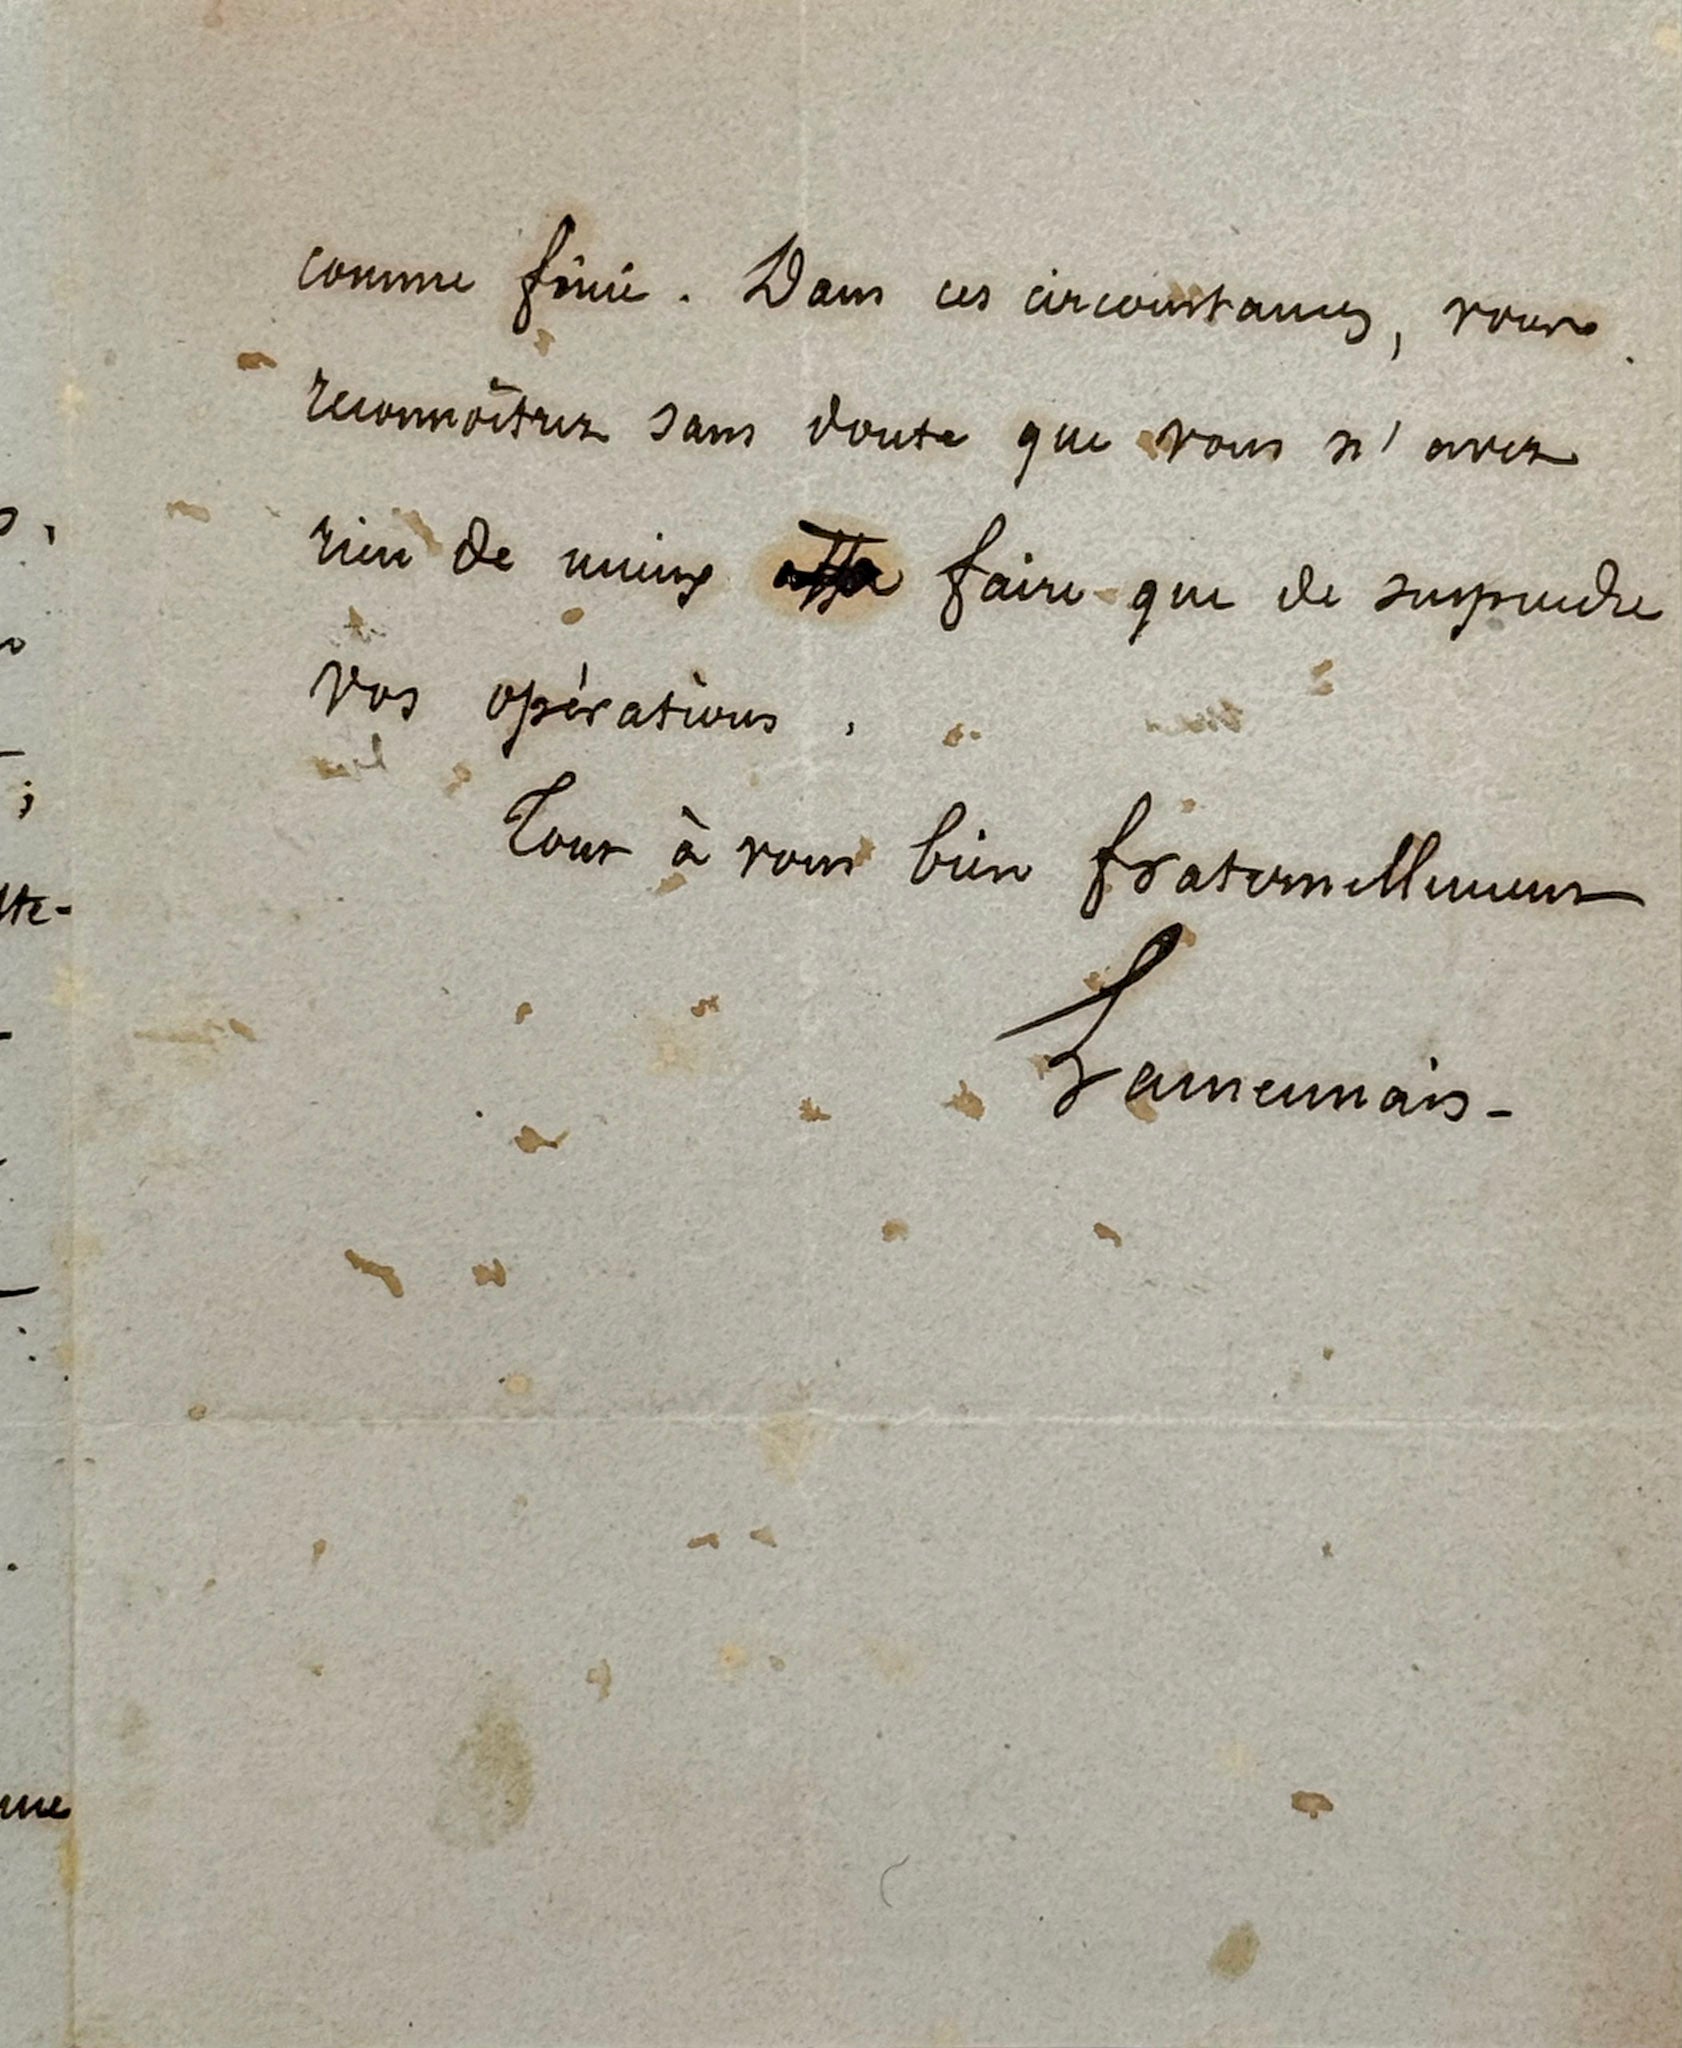 comme finie. Dans ces circonstances, vous
reconnoîtrez sans doute que vous n'avez
rien de mieux faire que de suspendre
vos opérations.
Tout à vous bien fraternellement
Lamennais-